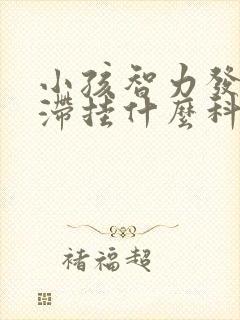 小孩智力發
滯挂什麼科
褚福超